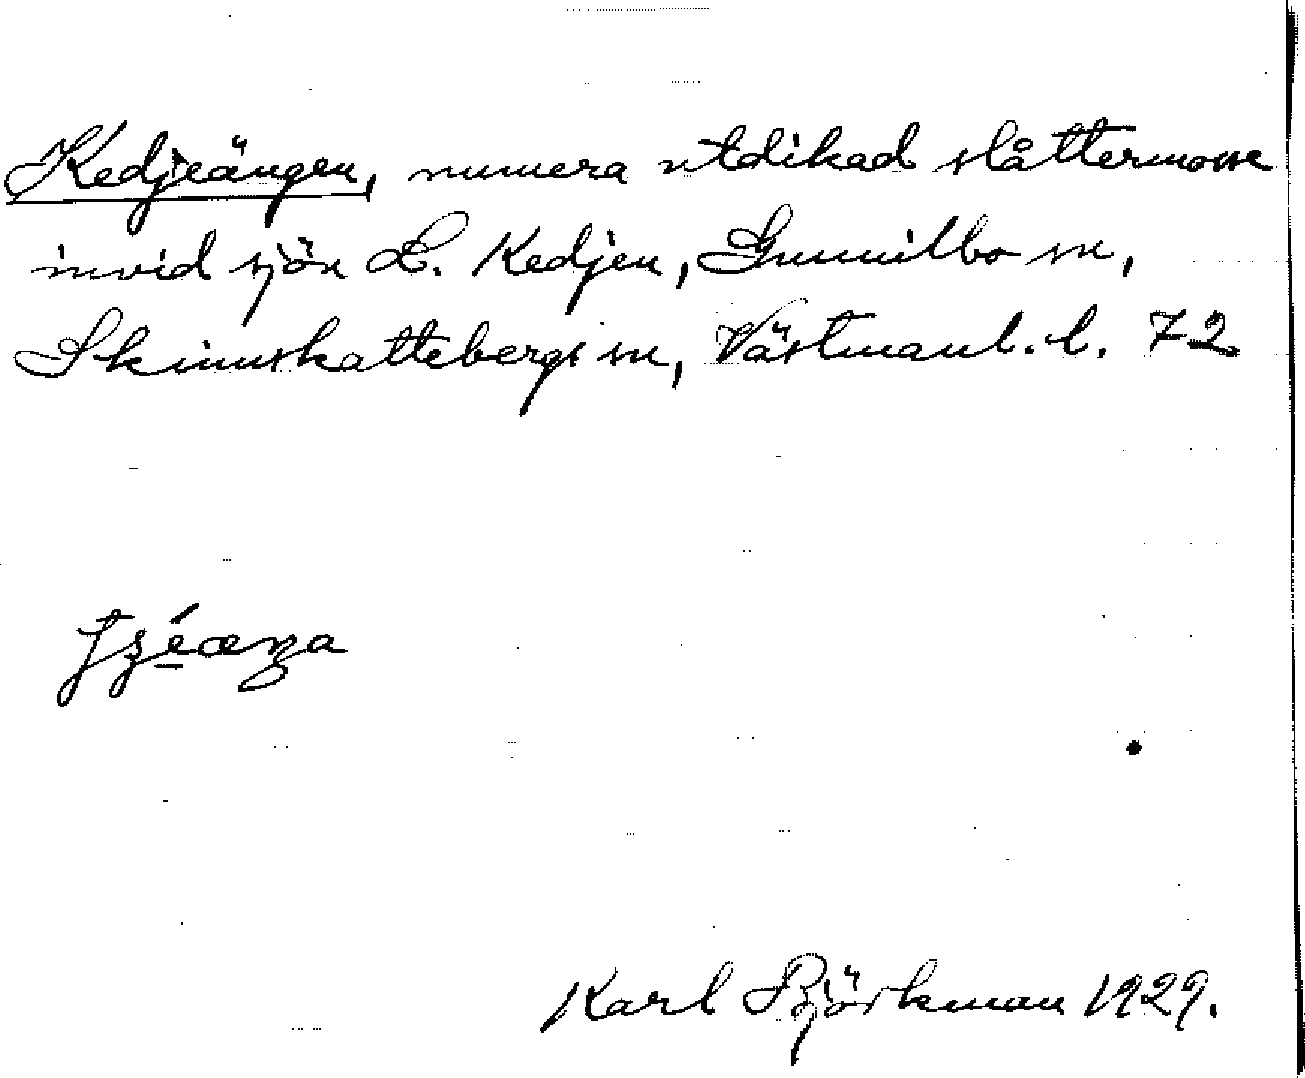 Kedjeängen, numera utdikad slåttermosse
invid sjön L. Kedjen, Gunnilbo sn,
Skinnskattebergs sn, Västmanl. l. 72
Karl Björkman 1929.